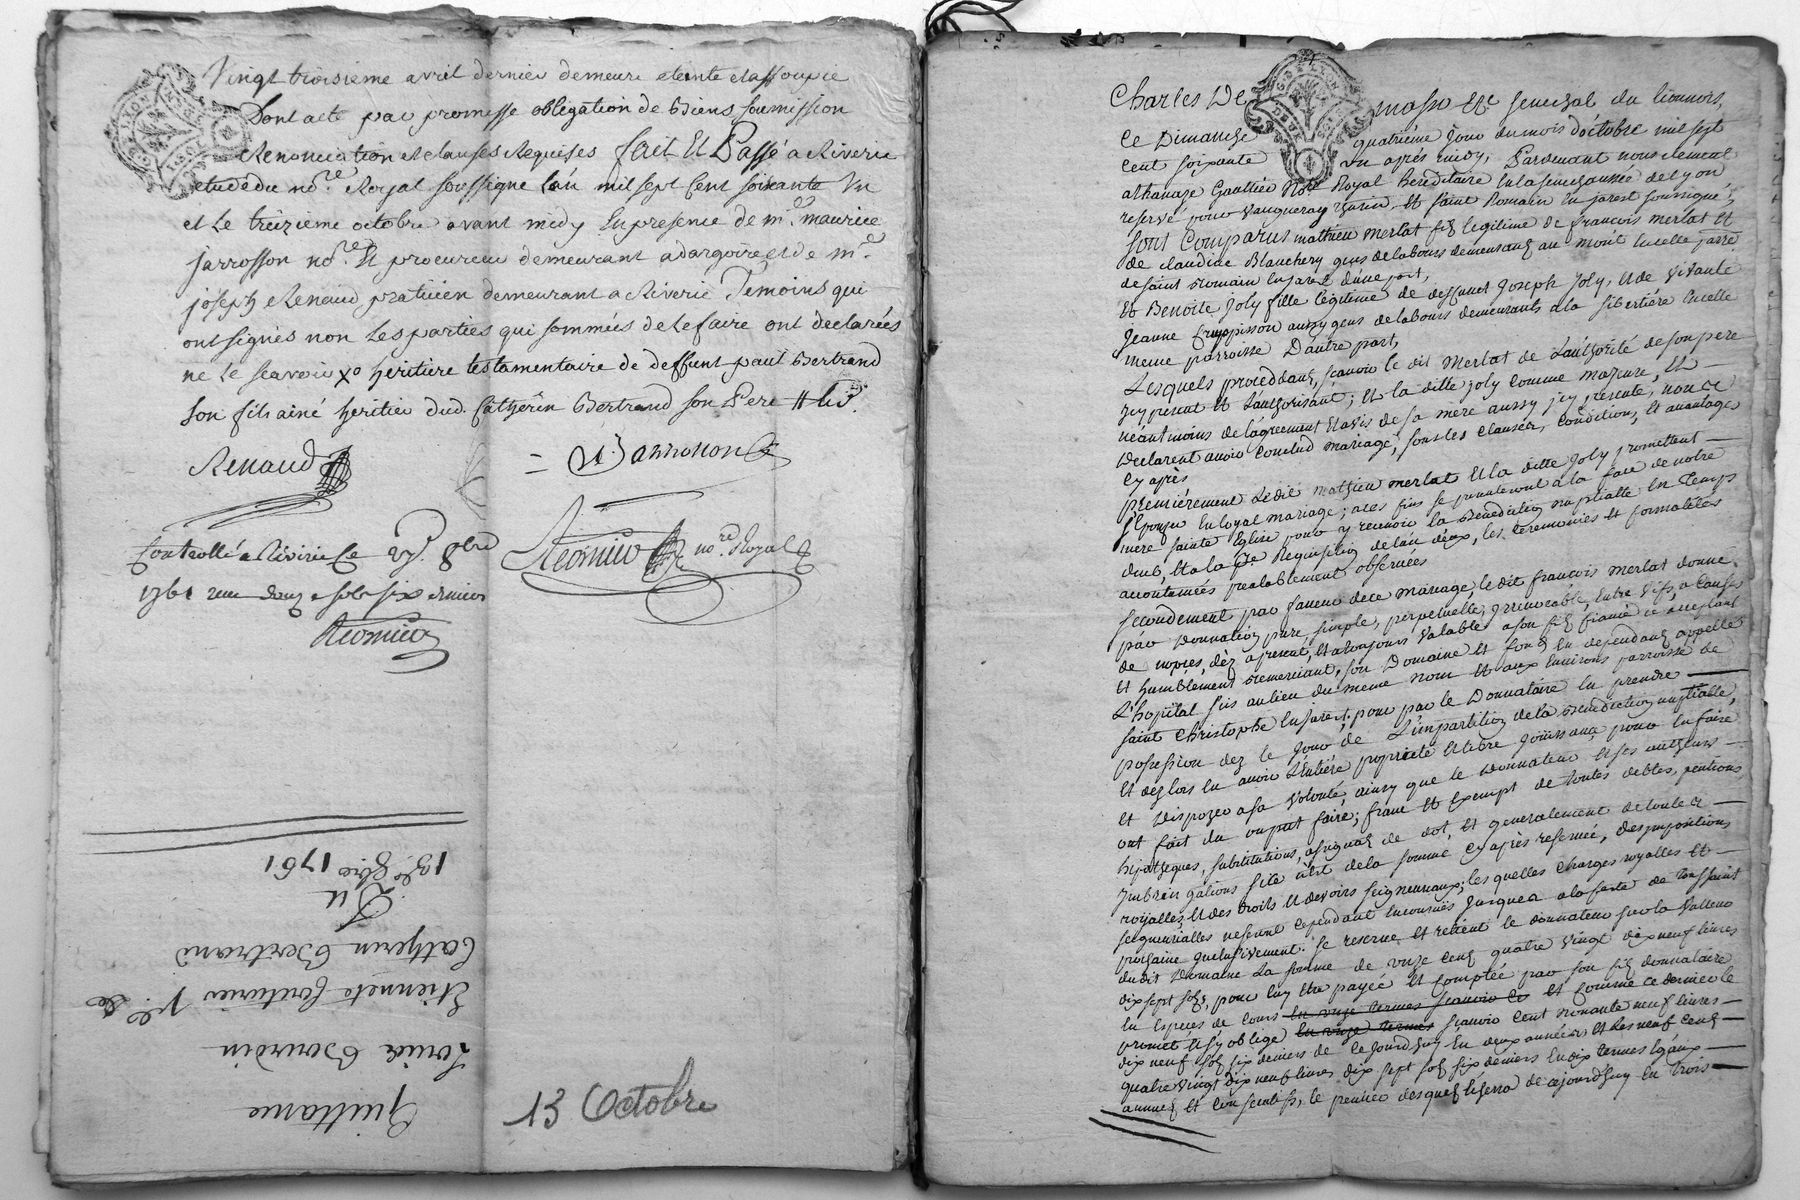 Vingt troisieme avril dernier demeure eteinte et assoupie
Dont acte par promesse obligation de biens soumission
Renonciation et clauses Requises fait Et Passé a Riverie
etude du no.re Royal soussigne L'an mil sept Cent soixante Un
et Le treizieme octobre avant midy En presence de m.e maurice
jarrosson no.re Et procureur demeurant a dargoire et de m.e
joseph Renaud praticien demeurant a Riverie Temoins qui
ont signés non Les parties qui sommées de Le faire ont declarées
ne Le scavoir x° heritiere testamentaire de deffunt paul Bertrand
son fils ainé heritier dud. Catherin Bertrand son Pere
Renaud
Jarrosson
Controllé a Riverie le 8bre
no.re Royal
1761 sols six deniers
13 8bre 1761
Du
Catherin Bertrand
Etiennete v.e de
Bourdin
Quittance
13 Octobre
GEN LYON
Charles De masso senechal du lionnois,
Ce Dimanche quatriéme jour du mois d'octobre mil sept
cent soixante un après midy, Pardevant nous clement
athanaze Gaultier Not.re Royal héréditaire En la senechaussée de Lyon
reservé pour Vaugneray Yzeron Et Saint Romain En jarest soussigné,
sont Comparus matthieu merlat fils legitime de francois merlat Et
de claudine Blanchery gens de labours demeurants au mont
de saint Romain En jarez d'une part,
Et Benoite joly fille légitime de deffunt Joseph Joly, Et de Vivante
Jeanne aussy gens de labours demeurants a la
meme parroisse D'autre part,
Lesquels proceddants, sçavoir le dit Merlat de L'authorité de son pere
jcy present Et L'authorisant; Et la ditte joly comme majeure, Et
néantmoins de l'agréement Et avis de sa mere aussy jcy présente, nous
Declarent avoir Conclud mariage, sous les Clauses, Conditions, Et avantages
Cy après
Premiérement Le dit mathieu merlat Et la ditte Joly promettent
s'Epouser En loyal mariage; a ces fins se presenteront a la face de notre
mere sainte Eglise pour y recevoir la Benediction nuptialle En Temps
deub, Et a la p.re Requisition de l'un d'eux, les céremonies Et formalités
accoutumées prealablement observées
Secondement par faveur de ce mariage, le dit francois merlat donne
par Donnation pure, simple, perpetuelle, jrrevocable, Entre Vifs, a Cause
de nopces, dèz apresent, Et a toujours Valable a son fils fiancé ce acceptant
Et humblement Remerciant, son Domaine Et fonds En dependants appellé
L'hopital sis au lieu du meme nom Et aux Environs parroisse de
saint Christophe En jarest, pour par le Donnataire En prendre
possession dez le jour de L'impartition de la Bénédiction nuptialle,
Et dezlors En avoir L'Entiére proprieté Et libre jouissance, pour En faire
Et Disposer a sa Volonté, ainsy que le Donnateur Et ses autheurs
ont fait du ou put faire; franc Et Exempt de toutes debtes, pentions
hipotheques, substitutions, assignats de dot, Et generalement de toutes
jmbringations si ce n'est de la somme cy après reservée, des jmpositions
royalles Et des droits Et devoirs seigneuriaux; les quelles charges royalles Et
seigneurialles ne seront cependant Encourues jusques a la feste de Toussaint
prochaine qu'elusivement. se reserve Et retient le donnateur sur la Valleur
du dit Domaine La somme de onze Cents quatre Vingt dix neuf livres
dix sept sols, pour luy Etre payée Et comptée par son fils donnataire
En Especes de cours En onze termes scavoir Et comme ce dernier le
promet Et s'y oblige En onze termes sçavoir Cent nonante neuf livres
dix neuf sols six deniers de Cejourd'huy En deux années; Et les neuf Cents
quatre Vingt dix neuf livres dix sept sols six deniers En dix termes Egaux
annuels Et Consecutifs, le premier desquels Echera de cejourd'huy En trois